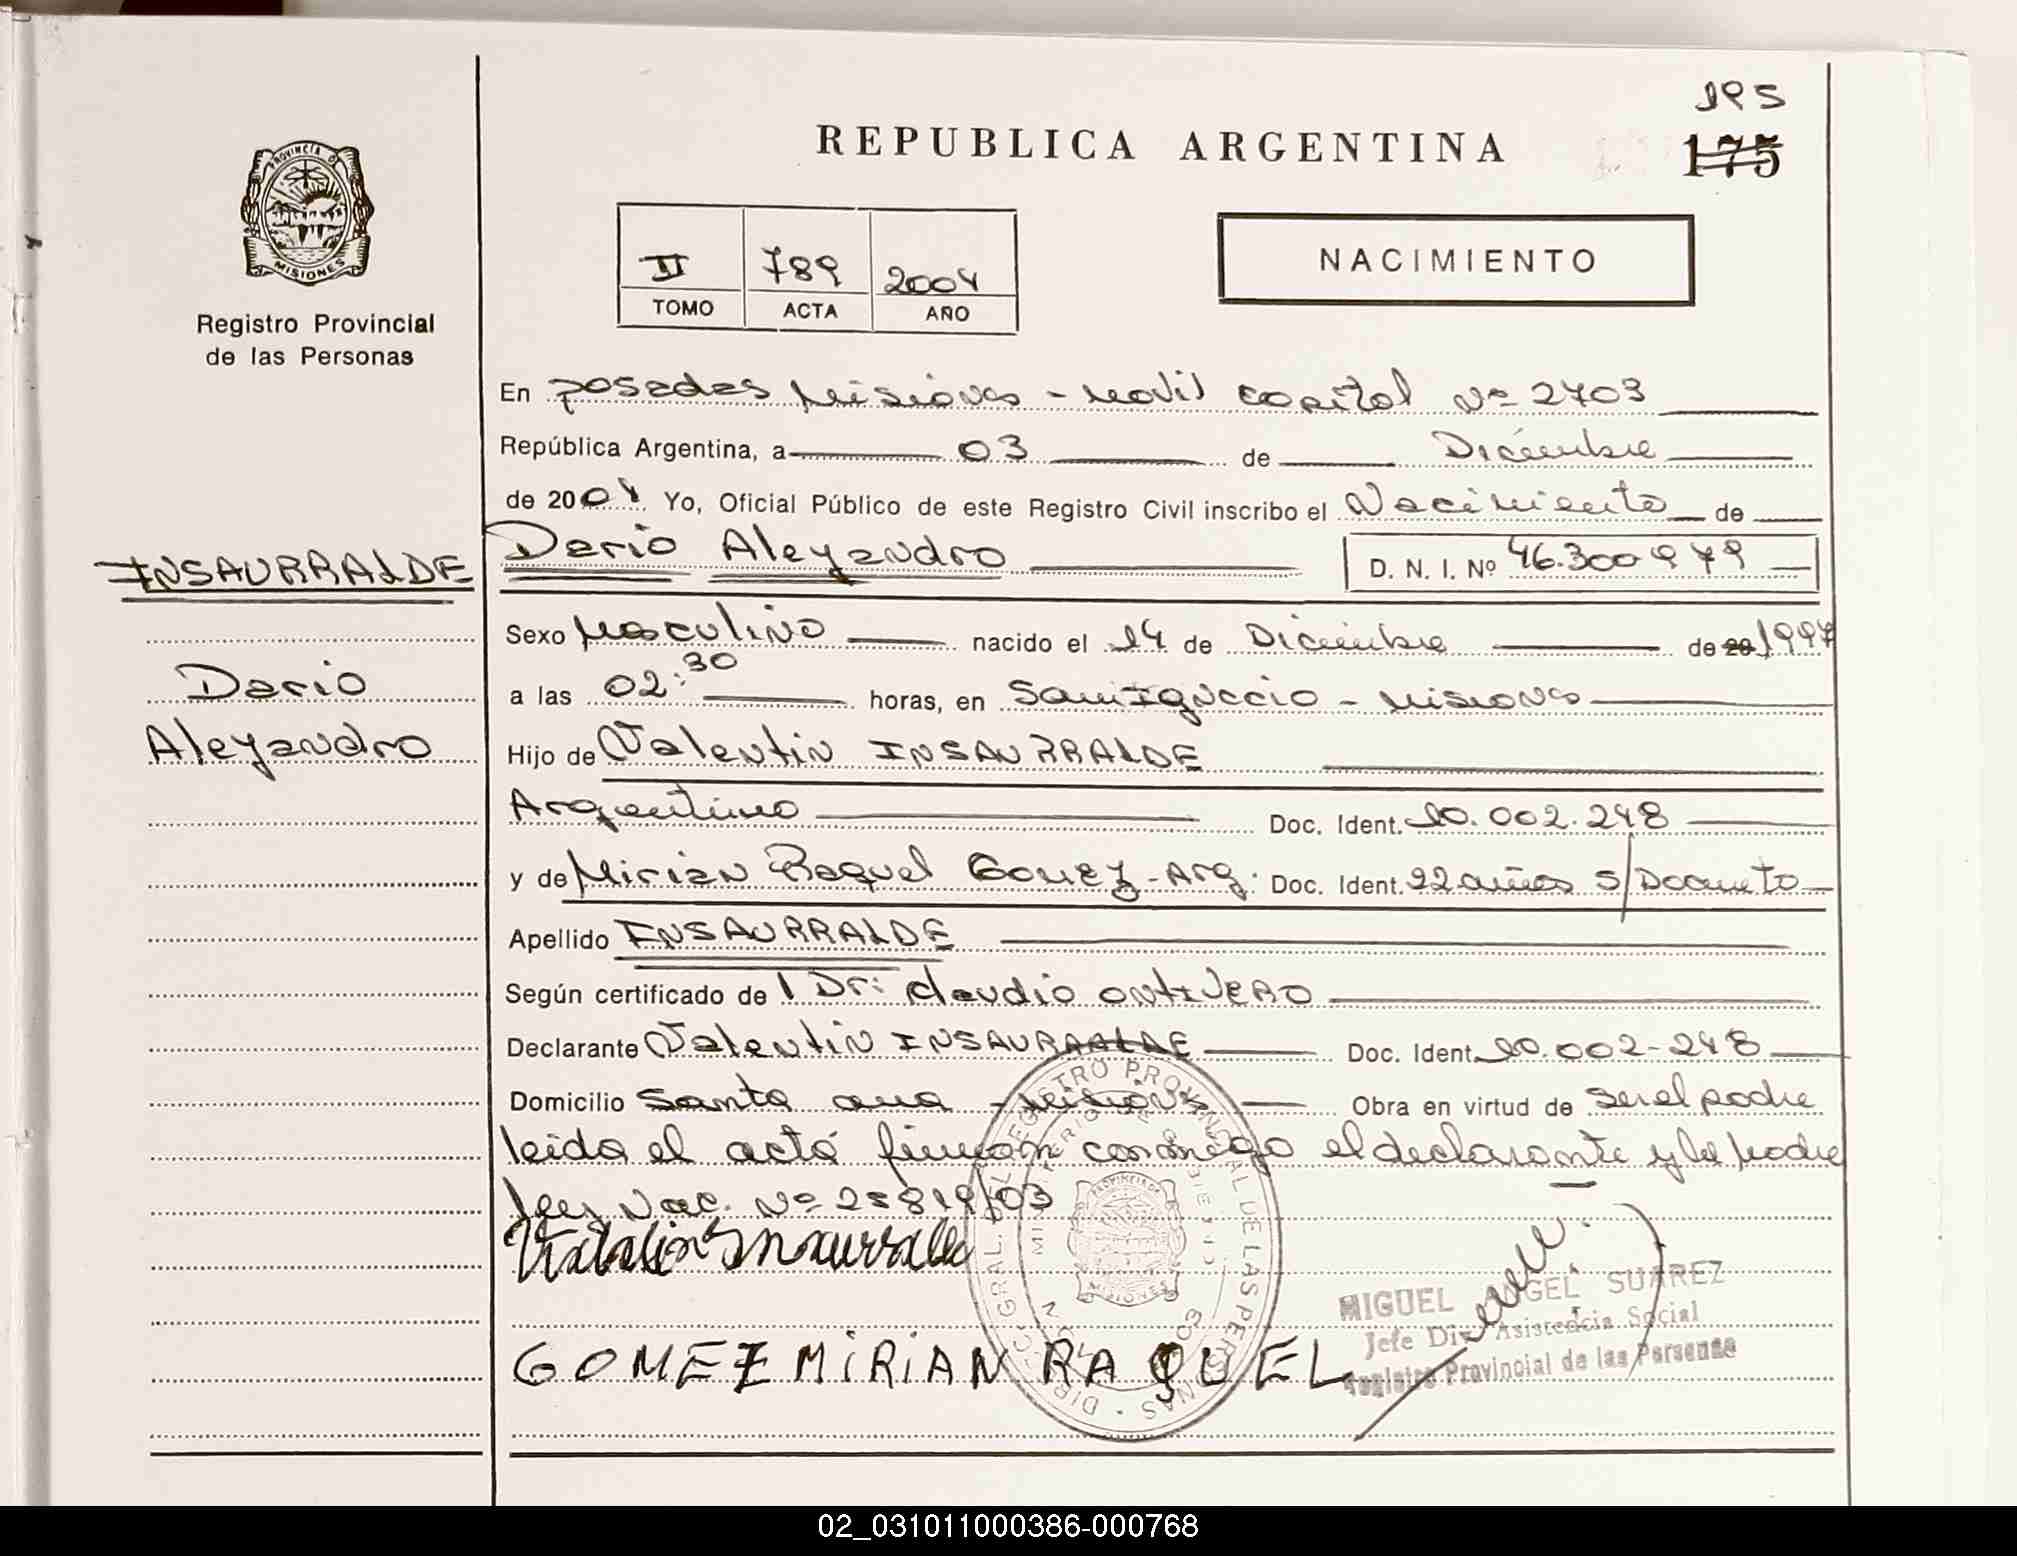 195
REPUBLICA ARGENTINA
175
PROVINCIA DE
MISIONES
Registro Provincial
de las Personas
II 789 2004
TOMO ACTA AÑO
NACIMIENTO
En posadas Misiones - Movil capital Nº 2703
República Argentina, a 03 de Diciembre
de 2004 Yo, Oficial Público de este Registro Civil inscribo el Nacimiento de
INSAURRALDE
Dario Aleyandro D. N. I. Nº 46.300979
Sexo Masculino nacido el 14 de Diciembre de 20 1997
Dario
a las 02:30 horas, en San Ignacio - Misiones
Aleyandro
Hijo de Valentin INSAURRALDE
Argentino Doc. Ident. 10.002.248
y de Mirian Raquel Gomez - Arg. Doc. Ident. 22 años s/Documeto
Apellido INSAURRALDE
Según certificado de Dr: Claudio ONTIVERO
Declarante Valentin INSAURRALDE Doc. Ident. 10.002-248
Domicilio Santa ana - Misiones Obra en virtud de ser el padre
leida el acta firman conmigo el declarante y la Madre
Ley Nac. Nº 25819/03
Valentin Insaurralde
MIGUEL ANGEL SUAREZ
Jefe Div. Asistencia Social
Registro Provincial de las Personas
GOMEZ MIRIAN RAQUEL
DIRECC. GRAL. DEL REGISTRO PROVINCIAL DE LAS PERSONAS
MINISTERIO DE GOBIERNO
MISIONES
02_031011000386-000768